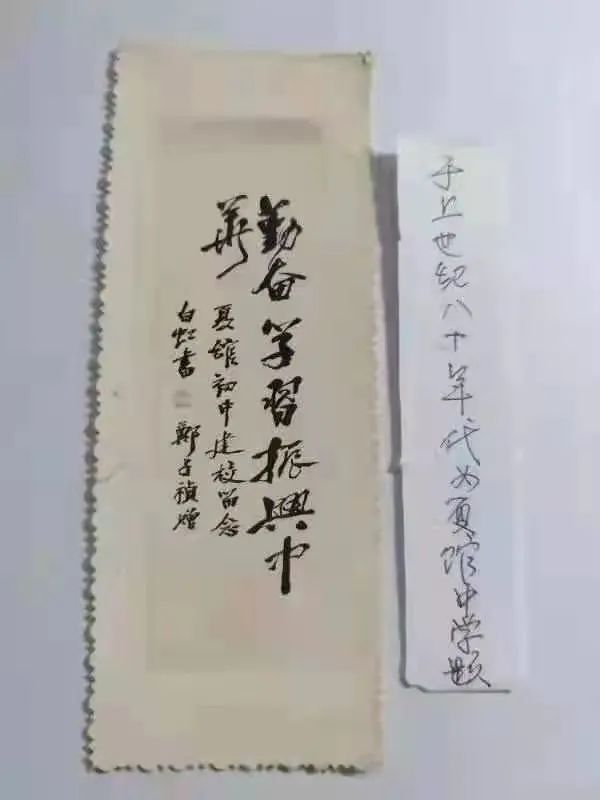 勤奋学習振興中
華
夏館初中建校留念
白虹書 鄭子禎贈
于上世纪八十年代为夏馆中学题